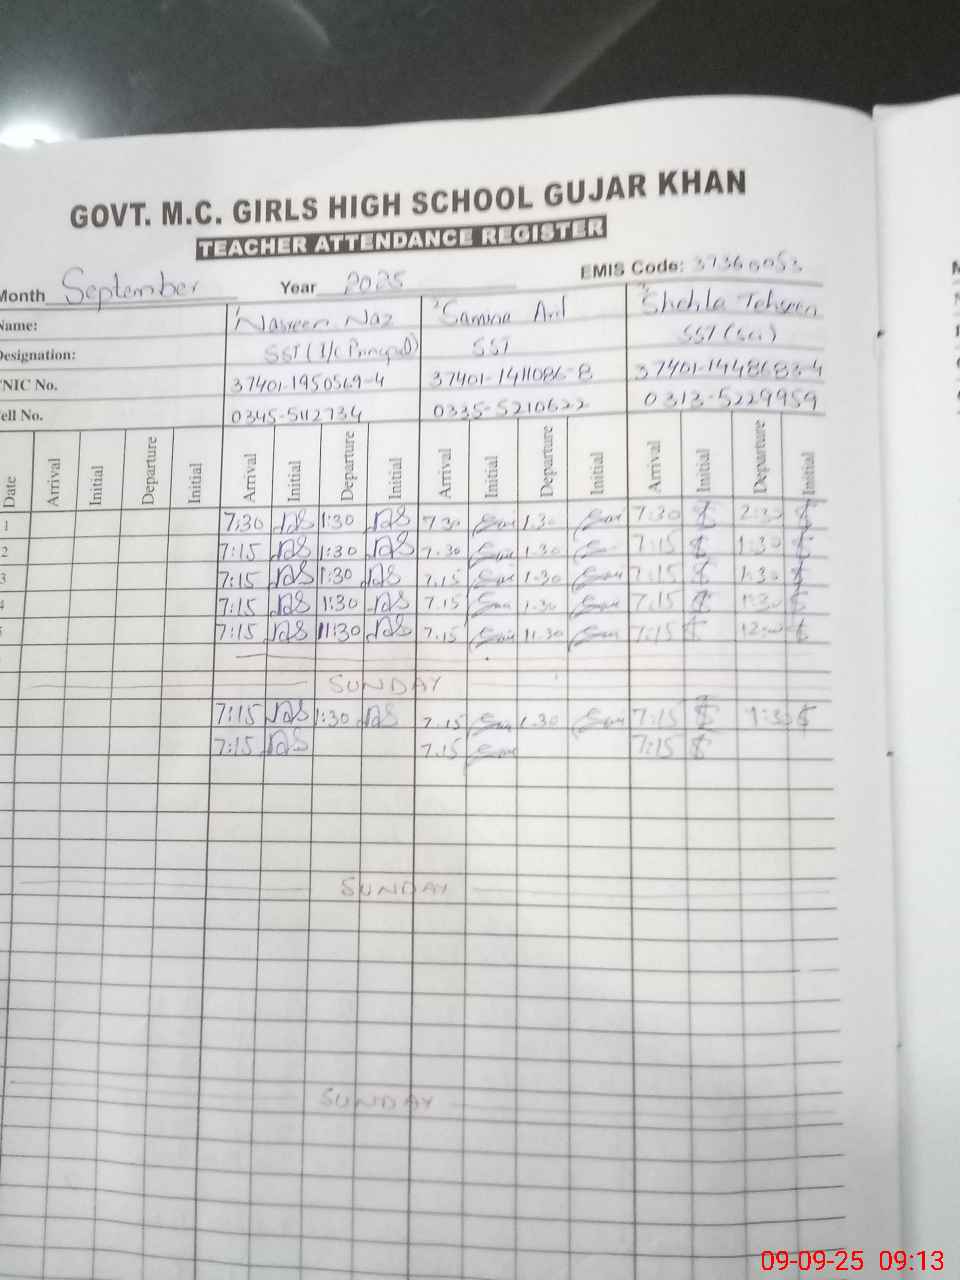 GOVT. M.C. GIRLS HIGH SCHOOL GUJAR KHAN
TEACHER ATTENDANCE REGISTER
Month September Year 2025 EMIS Code: 37360053
Name: Nasreen Naz Samina Shehla Tehseen
Designation: SST (I/C Principal) SST SST (Sci)
CNIC No. 37401-1950569-4 37401-1411086-8 37401-1448683-4
Cell No. 0345-5112734 0335-5210622 0313-5229959
Date Arrival Initial Departure Initial Arrival Initial Departure Initial Arrival Initial Departure Initial Arrival Initial Departure Initial
1 7:30 1:30 7.30 1.30 7:30 2:30
2 7:15 1:30 7.30 1.30 7:15 1:30
3 7:15 1:30 7.15 1.30 7:15 1:30
4 7:15 1:30 7.15 1.30 7:15 1:30
7:15 11:30 7.15 11.30 7:15
SUNDAY
7:15 1:30 7.15 1.30 7:15 1:30
7:15 7.15 7:15
SUNDAY
SUNDAY
09-09-25 09:13